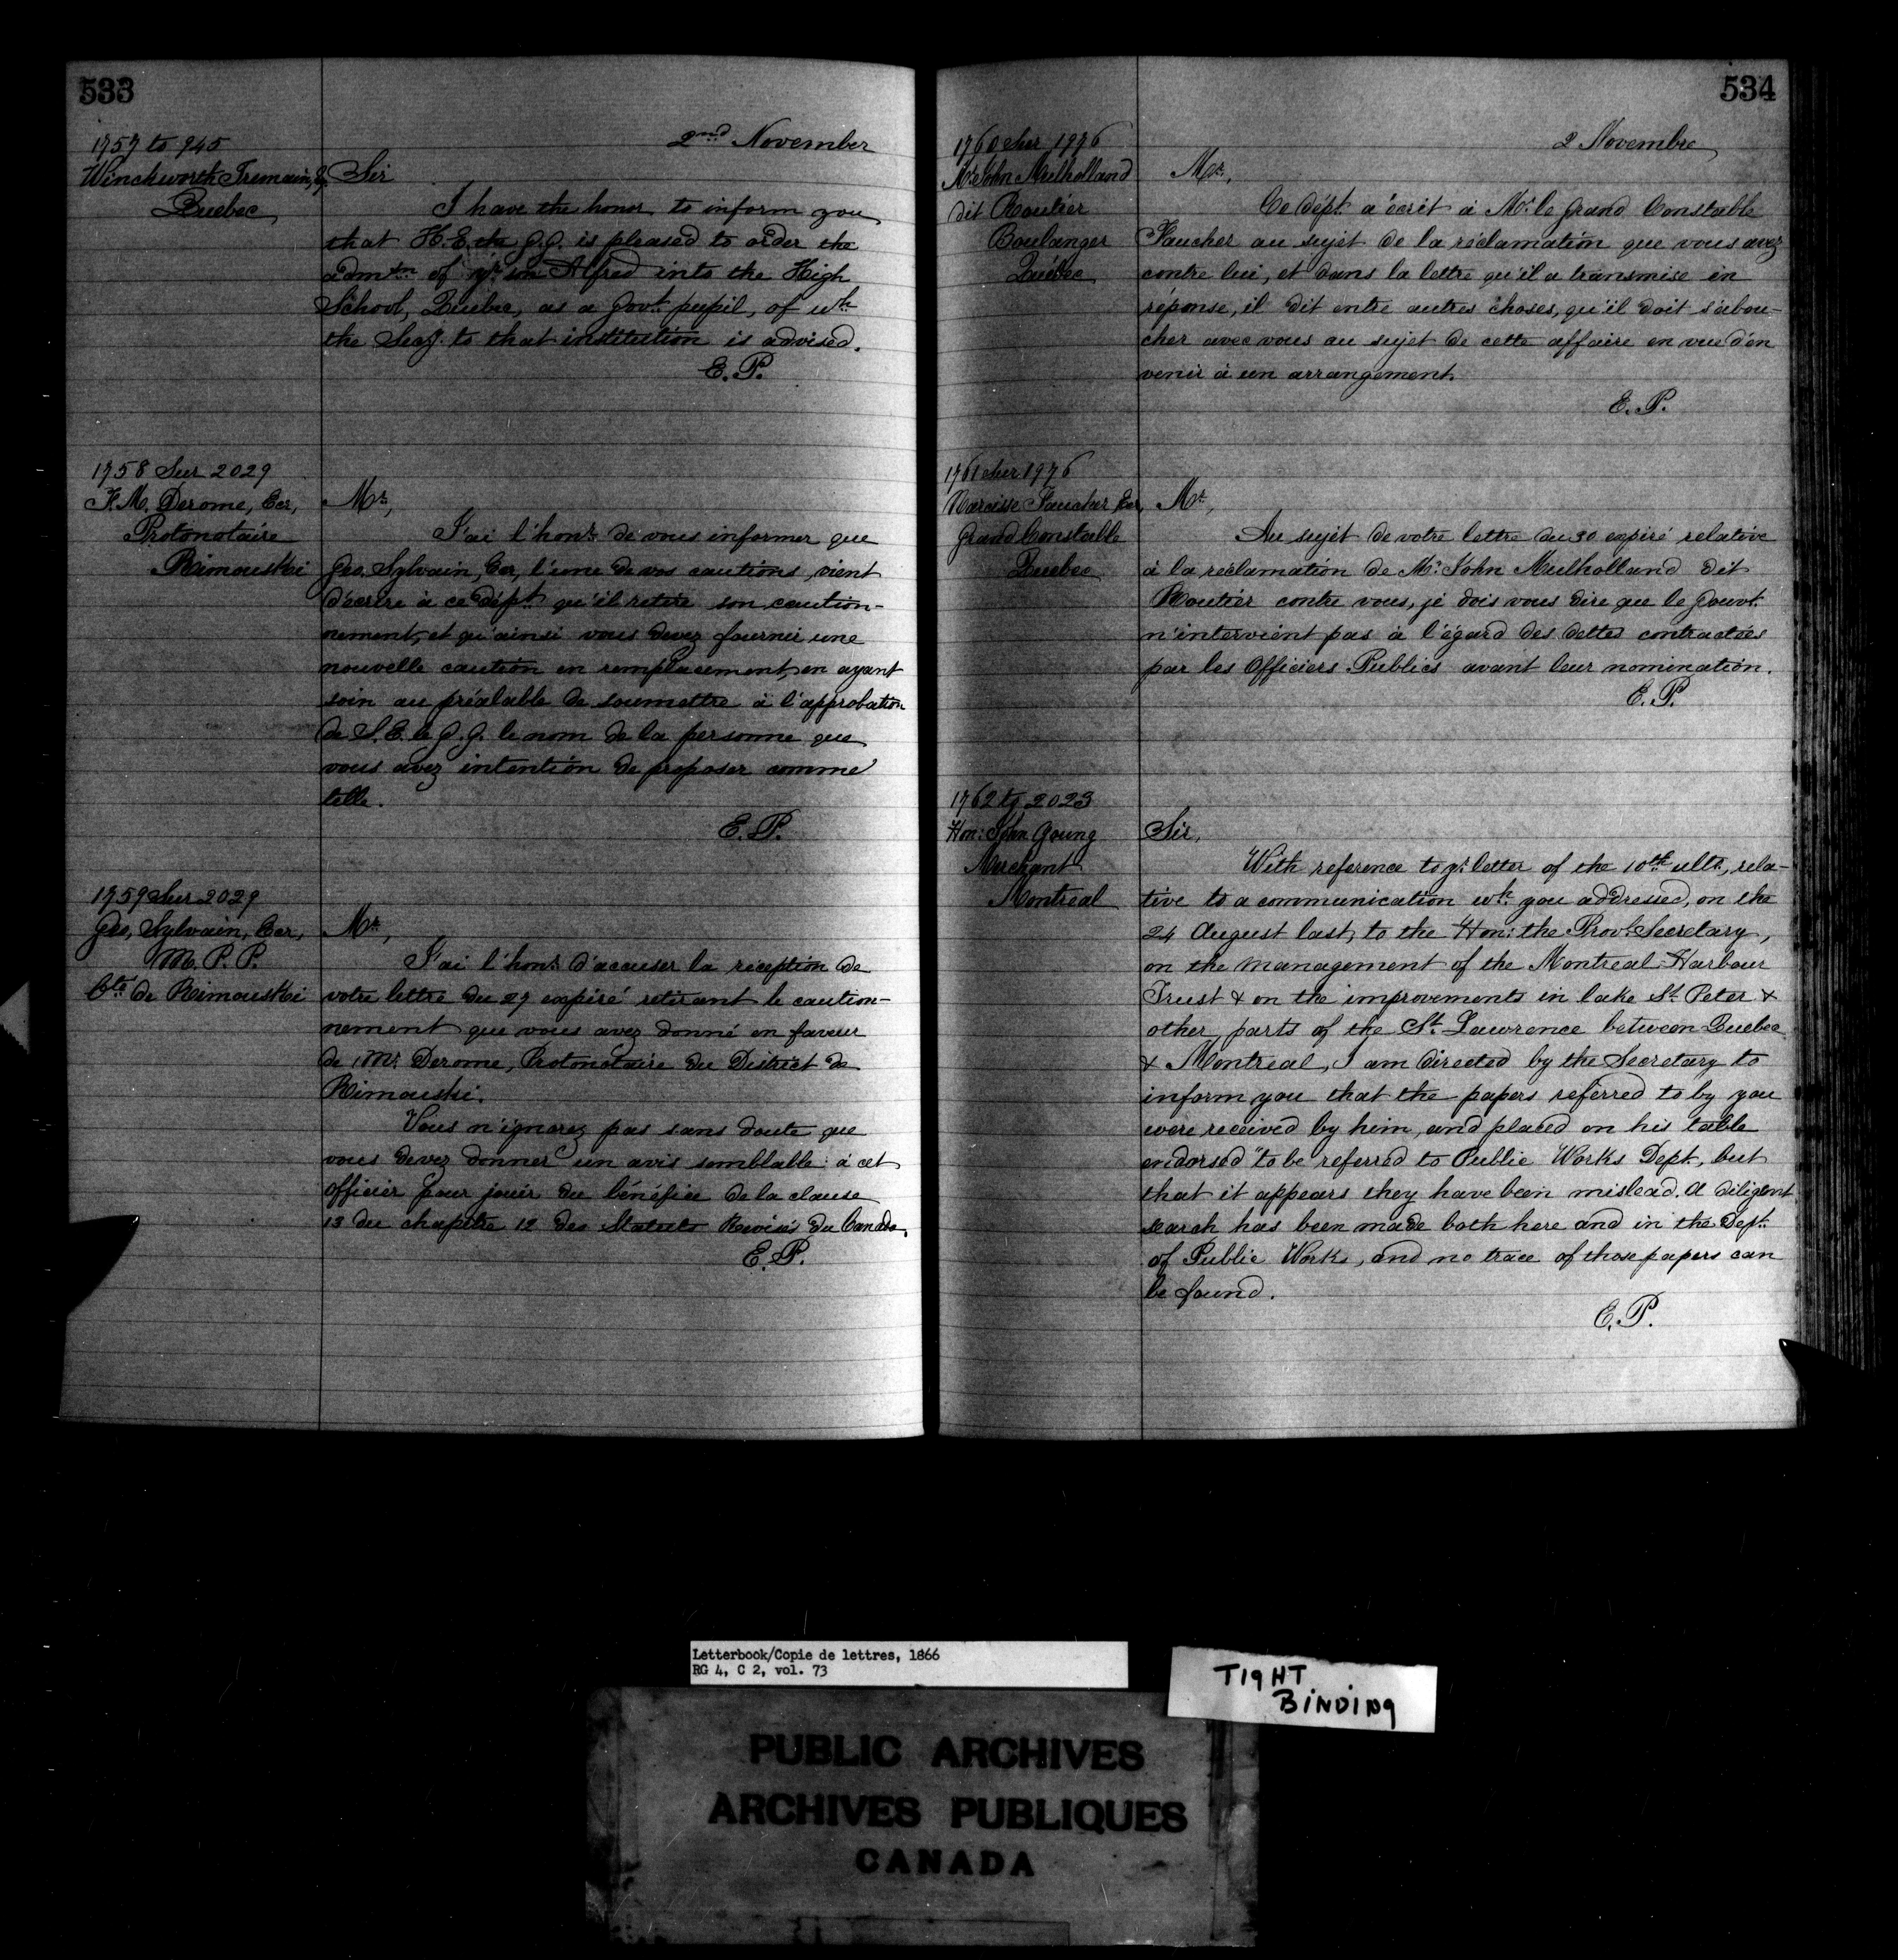 533
2nd November
1757 to 945
Winckworth Tremain, Eq
Quebec
Sir
I have the honor to inform you
that H. E. the G. G. is pleased to order the
admtn. of yr son Alfred into the High
School, Quebec, as a Govt. pupil, of wh.
the Secy. to that institution is advised.
E. P.
1758 Sur 2029
F. M. Derome, Ecr,
Protonotaire
Rimouski
Mr,
J'ai l'honr. de vous informer que
Geo. Sylvain, Ecr, l'une de vos cautions, vient
d'écrire à ce dépt. qu'il retire son caution-
nement, et qu'ainsi vous devez fournir une
nouvelle caution en remplacement, en ayant
soin au préalable de soumettre à l'approbation
de S. E. le G. G. le nom de la personne que
vous avez intention de proposer comme
telle.
E. P.
1759 Sur 2029
Geo, Sylvain, Ecr,
M. P. P.
Cté. de Rimouski
Mr,
J'ai l'honr. d'accuser la réception de
votre lettre du 29 expiré retirant le caution-
nement que vous avez donné en faveur
de Mr. Derome, Protonotaire du District de
Rimouski.
Vous n'ignorez pas sans doute que
vous devez donner un avis semblable à cet
officier pour jouir du bénéfice de la clause
13 du chapitre 12 des Statuts Revisés du Canada.
E. P.
534
2 Novembre
1760 Sur 1976
Mr. John Mulholland
dit Routier
Boulanger
Québec
Mr,
Ce dépt. a écrit à Mr. le Grand Constable
Faucher au sujet de la réclamation que vous avez
contre lui, et dans la lettre qu'il a transmise en
réponse, il dit entre autres choses, qu'il doit s'abou-
cher avec vous au sujet de cette affaire en vue d'en
venir à un arrangement.
E. P.
1761 Sur 1976
Narcisse Faucher Ecr,
Grand Constable
Quebec
Mr,
Au sujet de votre lettre du 30 expiré relative
à la réclamation de Mr. John Mulholland dit
Routier contre vous, je dois vous dire que le Gouvt.
n'intervient pas à l'égard des dettes contractées
par les Officiers Publics avant leur nomination.
E. P.
1762 to 2023
Hon: John Young
Merchant
Montreal
Sir,
With reference to yr. letter of the 10th ulto, rela-
tive to a communication wh. you addressed, on the
24 August last, to the Hon: the Provl. Secretary,
on the management of the Montreal Harbour
Trust & on the improvements in lake St. Peter &
other parts of the St. Lawrence between Quebec
& Montreal, I am directed by the Secretary to
inform you that the papers referred to by you
were received by him, and placed on his table
endorsed "to be referred to Public Works Dept., but
that it appears they have been mislead. A diligent
search has been made both here and in the Dept.
of Public Works, and no trace of those papers can
be found.
E. P.
Letterbook/Copie de lettres, 1866
RG 4, C 2, vol. 73
TIGHT
BINDING
PUBLIC ARCHIVES
ARCHIVES PUBLIQUES
CANADA